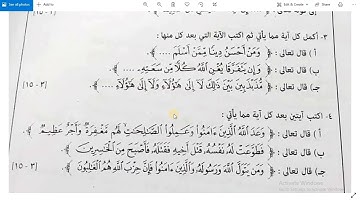 All Photos
Edit & Create
Share
(٣ - ١٥)
٣. أكمل كل آية مما يأتي ثم اكتب الآية التي بعد كل منها :
أ) قال تعالى : ﴿ وَمَنْ أَحْسَنُ دِينًا مِمَّنْ أَسْلَمَ .... ﴾.
ب) قال تعالى : ﴿ وَإِن يَتَفَرَّقَا يُغْنِ اللَّهُ كُلًّا مِّن سَعَتِهِ .... ﴾.
جـ) قال تعالى : ﴿ مُذَبْذَبِينَ بَيْنَ ذَٰلِكَ لَا إِلَىٰ هَٰؤُلَاءِ وَلَا إِلَىٰ هَٰؤُلَاءِ .... ﴾. (٣ - ١٥)
٤. اكتب آيتين بعد كل آية مما يأتي :
أ) قال تعالى : ﴿ وَعَدَ اللَّهُ الَّذِينَ آمَنُوا وَعَمِلُوا الصَّالِحَاتِ لَهُم مَّغْفِرَةٌ وَأَجْرٌ عَظِيمٌ ﴾.
ب) قال تعالى : ﴿ فَطَوَّعَتْ لَهُ نَفْسُهُ قَتْلَ أَخِيهِ فَقَتَلَهُ فَأَصْبَحَ مِنَ الْخَاسِرِينَ ﴾.
جـ) قال تعالى : ﴿ وَمَن يَتَوَلَّ اللَّهَ وَرَسُولَهُ وَالَّذِينَ آمَنُوا فَإِنَّ حِزْبَ اللَّهِ هُمُ الْغَالِبُونَ ﴾. (٣ - ١٥)
Activate Windows